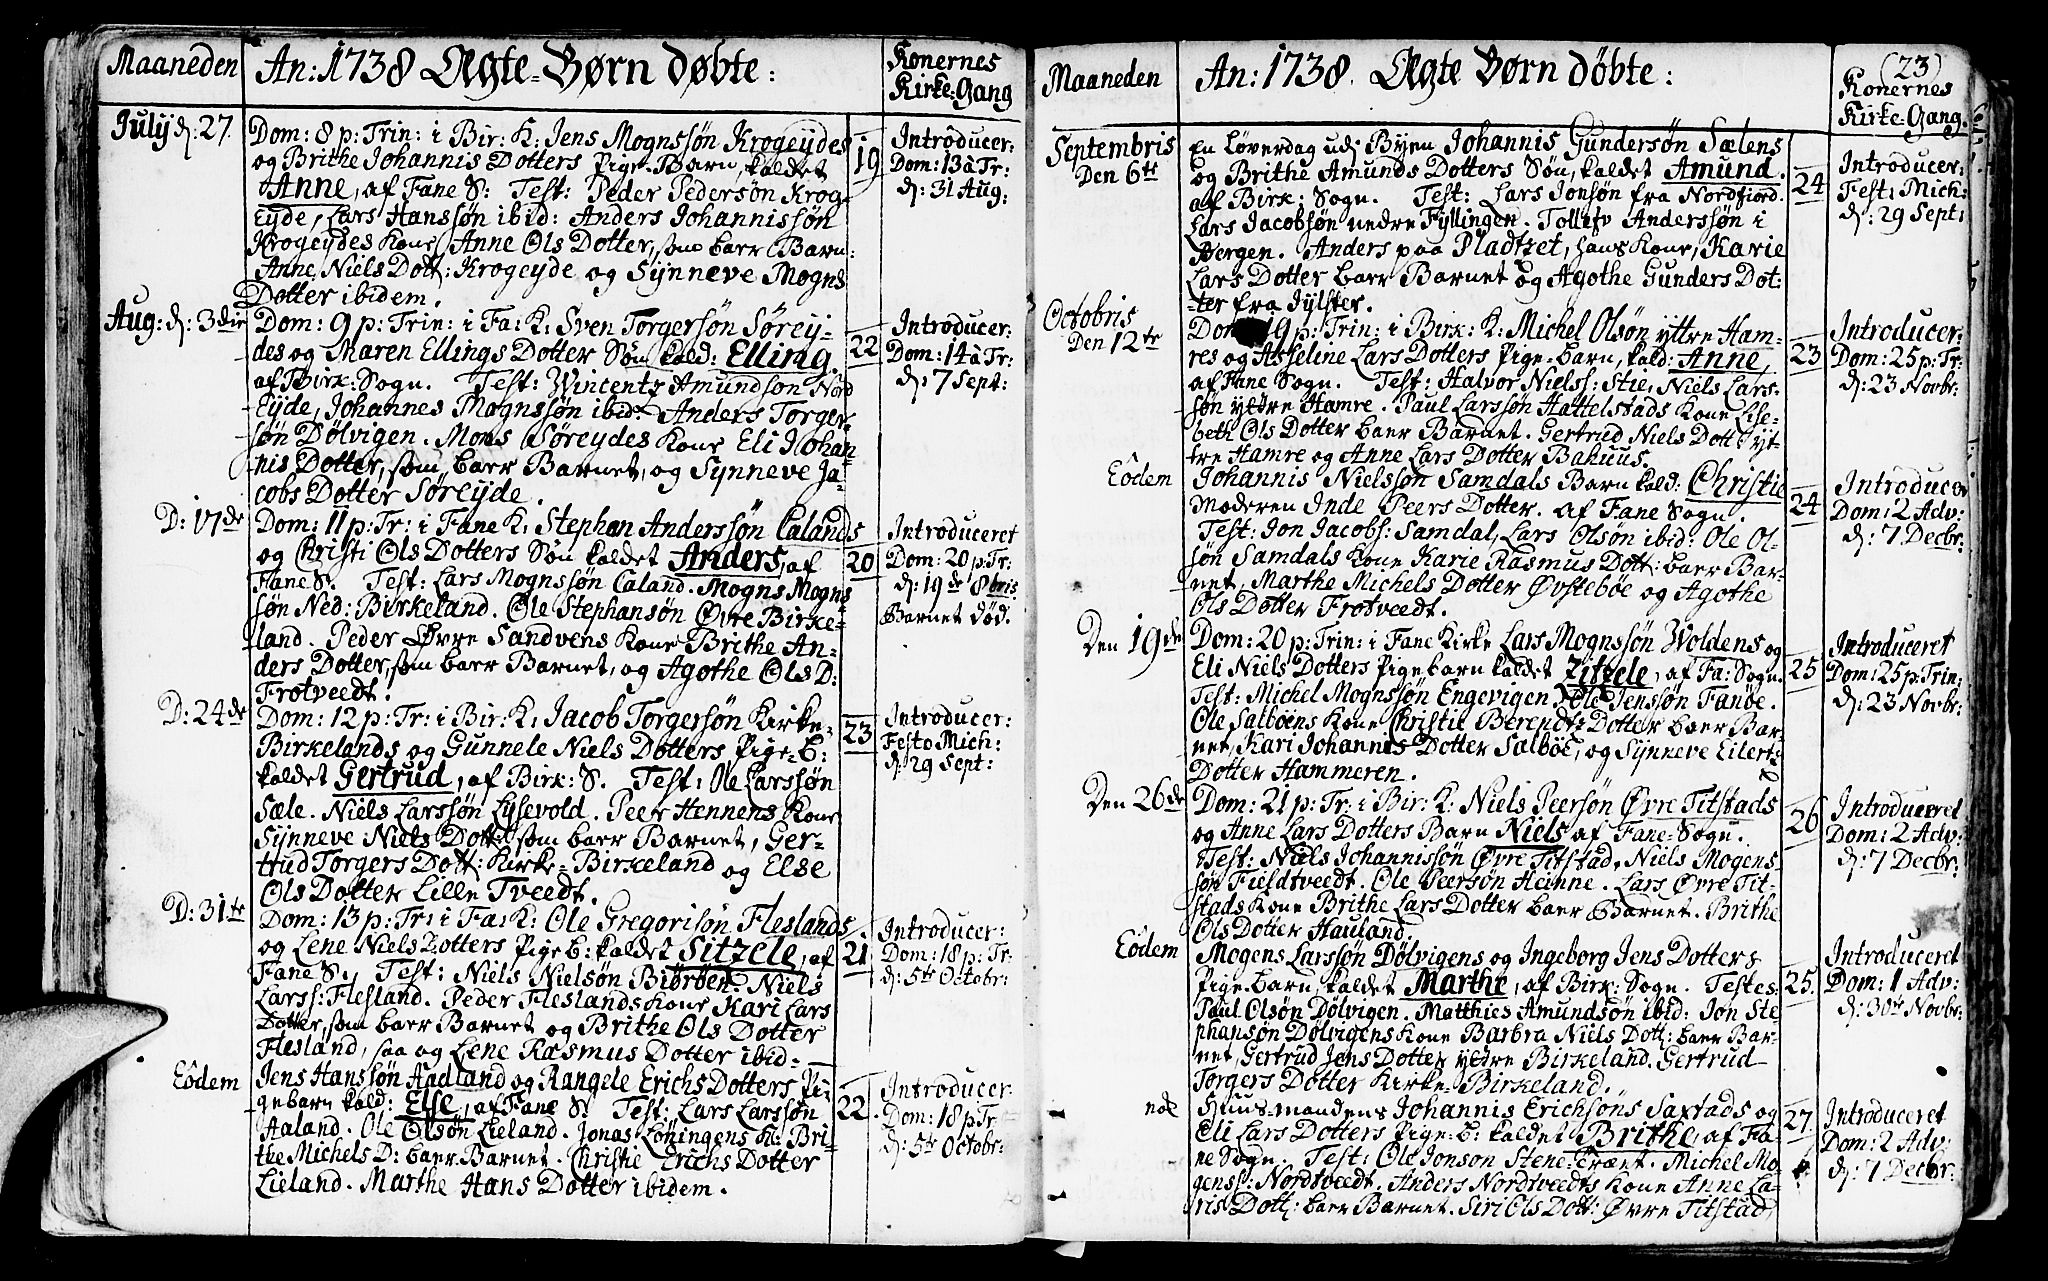 Maaneden
An: 1738 Ægte=Børn døbte:
Konernes
Kirke=Gang
July d: 27.
Dom: 8 p: Trin: i Bir: K: Jens Mognssøn Krogeydes
og Brithe Johannis Dotters Pige-Barn, kaldet
Anne, af Fane S: Test: Peder Pedersøn Krog-
Eyde, Lars Hanssøn ibid: Anders Johannissøn
Krogeydes Kone, Anne Ols Dotter, som baer Barn:
Anne Niels Dott: Krogeyde og Synneve Mogns
Dotter ibidem.
19
Introducer:
Dom: 13 à Tr:
d: 31 Aug:
Aug: d: 3die
Dom: 9 p: Trin: i Fa: K: Sven Torgersøn Sørey-
des og Maren Ellings Dotter Søn kald: Elling.
af Birk: Sogn. Test: Wincentz Amundsøn Nord
Eyde, Johannes Mognssøn ibid: Anders Torger-
søn Dølvigen. Mons Søreydes Kone Eli Johan-
nis Dotter, som baer Barnet, og Synneve Ja-
cobs Dotter Søreyde.
22
Introducer:
Dom: 14 à Tr:
d: 7 Sept:
D: 17de
Dom: 11 p: Tr: i Fane K: Stephan Anderssøn Calands
og Christi Ols Dotters Søn kaldet Anders, af
Fane S. Test: Lars Mognssøn Caland. Mogns Mogns-
søn Ned: Birkeland. Ole Stephansøn Øvre Birke-
land. Peder Øvre Sandvens Kone Brithe An-
ders Dotter, som baer Barnet, og Agothe Ols D:
Frotveedt.
20
Introduceret
Dom: 20 p: Tr:
d: 19de 8bris
Barnet død.
D: 24de
Dom: 12 p: Tr: i Bir: K: Jacob Torgersøn Kirke-
Birkelands og Gunnele Niels Dotters Pige=B:
kaldet Gertrud, af Birk: S. Test: Ole Larssøn
Sæle. Niels Larssøn Lysevold. Peer Hennens Kone
Synneve Niels Dott: som baer Barnet, Ger-
trud Torgers Dott: Kirke=Birkeland og Else
Ols Dotter Lille Tveedt.
23
Introducer:
Festo Mich:
d: 29 Sept:
D: 31te
Dom: 13 p: Tr: i Fa: K: Ole Gregorisøn Fleslands
og Lene Niels Dotters Pige B: kaldet Sitzele, af
Fane S. Test: Niels Nielsøn Biørøen. Niels
Larss: Flesland. Peder Fleslands Kone Kari Lars
Dotter, som baer Barnet og Brithe Ols Dotter
Flesland, saa og Lene Rasmus Dotter ibid-
21
Introducer:
Dom: 18 p: Tr:
d: 5te Octobr:
Eôdem
Jens Hanssøn Aadland og Rangele Erichs Dotters Pi-
gebarn kald: Else, af Fane S. Test: Lars Larssøn
Aaland. Ole Olsøn Lieland. Jonas Løningens K: Bri-
the Michels D: baer Barnet. Christie Erichs Dotter
Lieland. Marthe Hans Dotter ibidem.
22
Introducer:
Dom: 18 p: Tr:
d: 5te Octobr:
(23)
Maaneden
An: 1738. Ægte Børn døbte:
Konernes
Kirke=Gang.
Septembris
Den 6te
En Løverdag udi Byen Johannis Gundersøn Sælens
og Brithe Amunds Dotters Søn, kaldet Amund.
af Birk: Sogn. Test: Lars Jonsøn fra Nordfiord.
Lars Jacobsøn nedre Fyllingen. Tollefv Anderssøn i
Bergen. Anders paa Pladtzet, hans Kone, Karie
Lars Dotter baer Barnet og Agothe Gunders Dot:
ter fra Jylster.
24
Introducer:
Fest: Mich:
d: 29 Sept:
Octobris
Den 12te
Dom 19 p: Trin: i Birk: K: Michel Olsøn yttre Ham-
res og Asseline Lars Dotters Pige=barn, kald: Anne,
af Fane Sogn. Test: Halvor Nielss: Stie, Niels Lars-
søn yttre Hamre. Paul Larssøn Hattelstads Kone Else-
beth Ols Dotter baer Barnet. Gertrud Niels Dott Yt-
tre Hamre og Anne Lars Dotter Bakuus.
23
Introducer:
Dom: 25 p: Tr:
d: 23 Novbr:
Eôdem
Johannis Nielssøn Samdals Barn kald: Christie
Moderen Inde Peers Dotter. af Fane Sogn.
Test: Jon Jacobs: Samdal, Lars Olsøn ibid: Ole Ol-
søn Samdals Kone Karie Rasmus Dott: baer Bar-
net, Marthe Michels Dotter Øvstebøe og Agothe
Ols Dotter Frotveedt.
24
Introducer
Dom: 2 Adv:
d: 7 Decbr:
Den 19de
Dom: 20 p: Trin: i Fane Kirke Lars Mognssøn Woldens og
Eli Niels Dotters Pigebarn kaldet Zitzele, af Fa: Sogn.
Test: Michel Mognssøn Engevigen. Ole Jenssøn Fanøe.
Ole Salbøens Kone Christie Berendtz Dotter baer Bar-
net, Kari Johannis Dotter Salbøe, og Synneve Eilerts
Dotter Hammeren.
25
Introduceret
Dom: 25 p: Trin:
d: 23 Novbr:
Den 26de
Dom: 21 p: Tr: i Bir: K: Niels Peersøn Øvre Titstads
og Anne Lars Dotters Barn Niels af Fane=Sogn.
Test: Niels Johannissøn Øvre Titstad, Niels Mogens-
søn Fieldtveedt. Ole Peersøn Heinne. Lars Øvre Tit-
stads Kone Brithe Lars Dotter baer Barnet. Brithe
Ols Dotter Hauland.
26
Introduceret
Dom: 2 Adv:
d: 7 Decbr:
Eôdem
Mogens Larssøn Dølvigens og Ingeborg Jens Dotters
Pige=barn, kaldet Marthe, af Birk: Sogn. Testes:
Paul Olsøn Dølvigen. Matthies Amundsøn ibid: Jon Ste-
phansøn Dølvigens Kone Barbra Niels Dott: baer Bar-
net, Gertrud Jens Dotter yttre Birkeland. Gertrud
Torgers Dotter Kirke=Birkeland.
25
Introduceret
Dom: 1 Adv:
d: 30te Novbr:
Huus-mandens Johannis Erichsøns Saxtads og
Eli Lars Dotters Pige=B: kaldet Brithe, af Fa-
ne Sogn. Test: Ole Jonson Stene=Træet. Michel Mo-
genss: Nordtveedt. Anders Nordtveedts Kone Anne La-
ris Dott: baer Barnet. Siri Ols Dott: Øvre Titstad,
27
Introduceret
Dom: 2 Adv:
d: 7 Decbr: